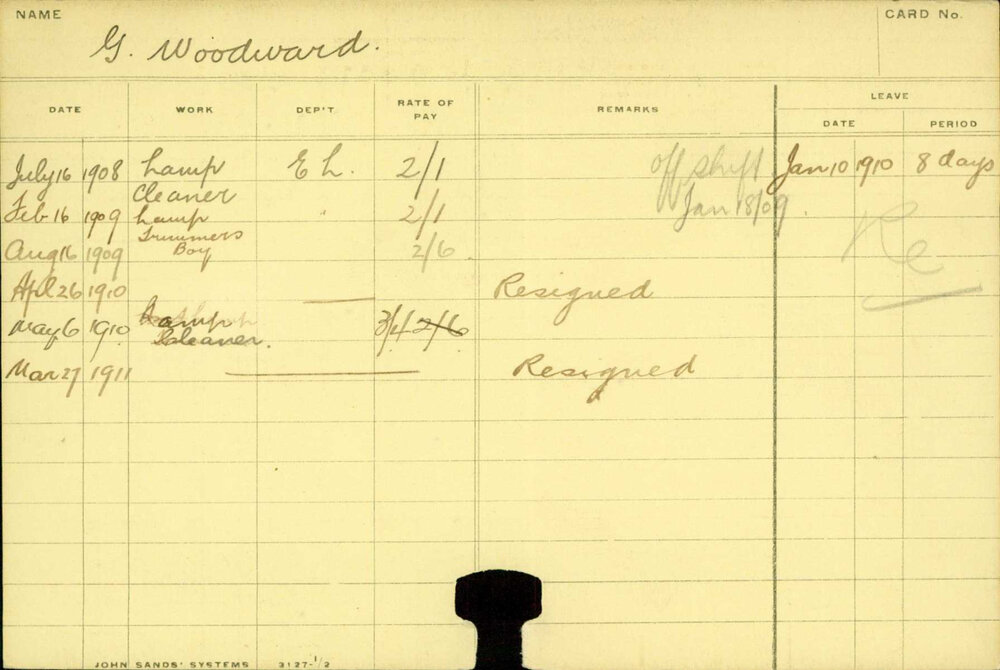 NAME
CARD No.
G. Woodward.
DATE WORK DEP'T RATE OF PAY REMARKS LEAVE
DATE PERIOD
July 16 1908 Lamp E L. 2/1 off shift Jan 10 1910 8 days
Cleaner Jan 18/09
Feb 16 1909 Lamp " 2/1
Trimmers
Aug 16 1909 Boy 2/6 Re
April 26 1910 Resigned
May 6 1910 Lamp 3/4 2/6
Cleaner.
Mar 27 1911 Resigned
JOHN SANDS' SYSTEMS 3127-1/2